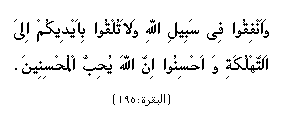 وَاَنْفِقُوا فِى سَبِيلِ اللّٰهِ وَلَا تُلْقُوا بِاَيْدِيكُمْ اِلىَ
التَّهْلُكَةِ وَ اَحْسِنُوا اِنَّ اللّٰهَ يُحِبُّ الْمُحْسِنِينَ .
(البقرة:١٩٥)